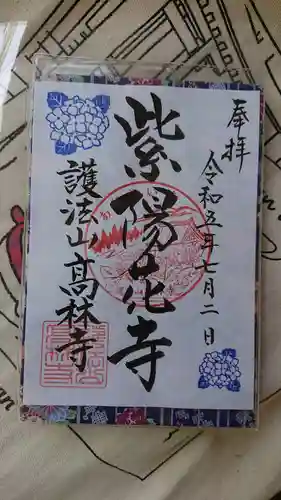 奉拝
令和五年七月二日
紫陽花寺
護法山高林寺